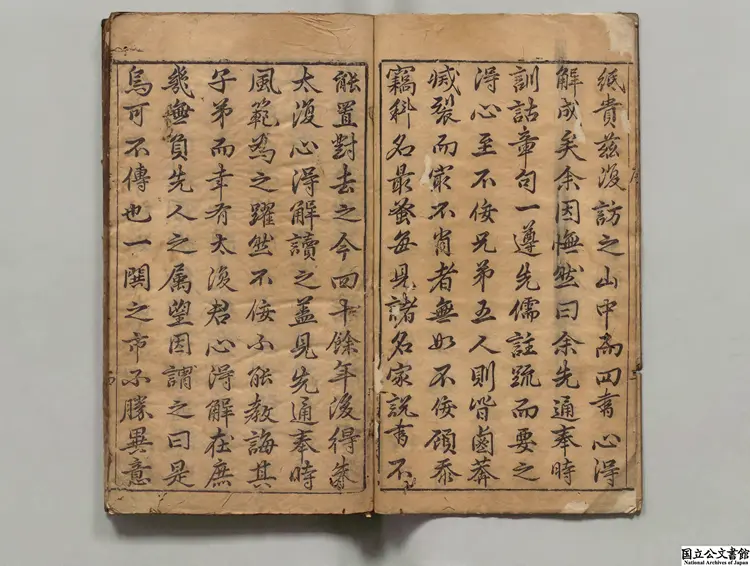 紙貴茲復訪之山中而四書心得
解成矣余因憮然曰余先通奉時
訓詁章句一遵先儒註疏而要之
得心至不佞兄弟五人則皆鹵莽
滅裂而家不肖者無如不佞顧忝
竊科名最蚤每見諸名家說書不
能置對去之今四十餘年復得朱
太復心得解讀之蓋見先通奉時
風範為之躍然不佞不能教誨其
子弟而幸有太復君心得解在庶
幾無負先人之属望因謂之曰是
烏可不傳也一閧之市不勝異意
国立公文書館
National Archives of Japan